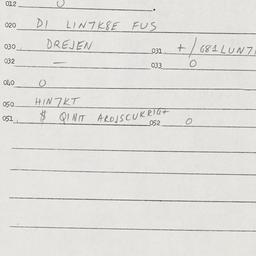 012 0
020 DI LIN7K8E FUS
030 DREJEN 031 + / G81LUN7
032 — 033 0
040 0
050 HIN7KT
051 $ QINIT AROJSCUKRIGT 052 0